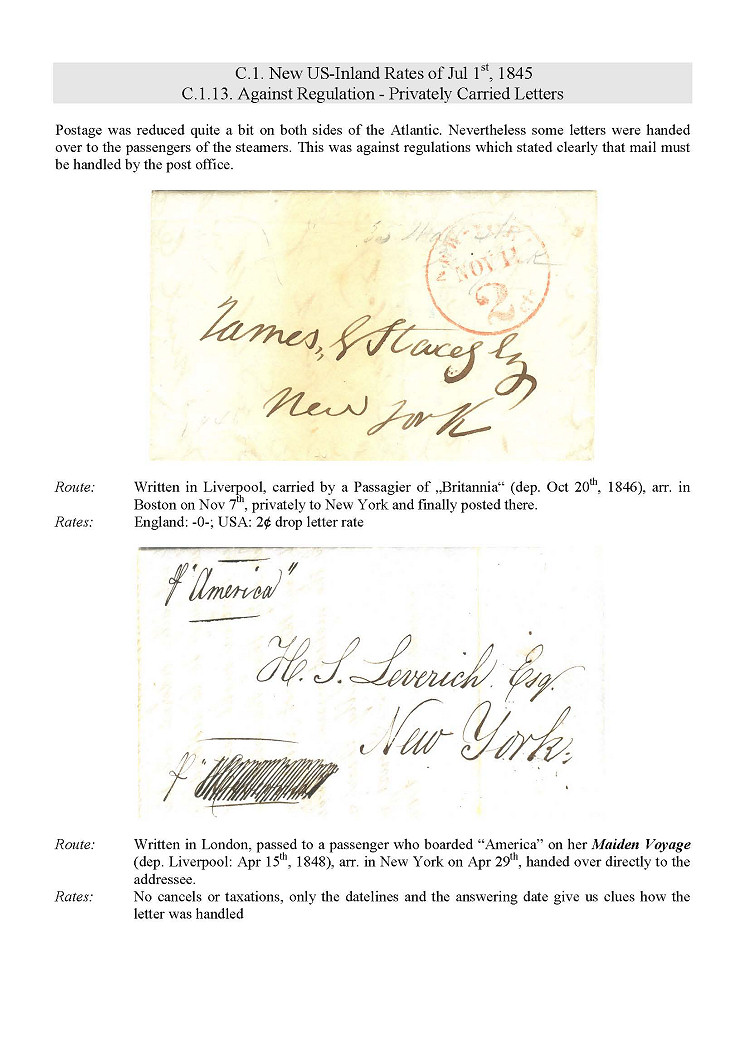 C.1. New US-Inland Rates of Jul 1st, 1845
C.1.13. Against Regulation - Privately Carried Letters
Postage was reduced quite a bit on both sides of the Atlantic. Nevertheless some letters were handed
over to the passengers of the steamers. This was against regulations which stated clearly that mail must
be handled by the post office.
NEW-YORK
NOV 11
2 cts
James, G Stacey Esq
New York
Route: Written in Liverpool, carried by a Passagier of „Britannia“ (dep. Oct 20th, 1846), arr. in
Boston on Nov 7th, privately to New York and finally posted there.
Rates: England: -0-; USA: 2¢ drop letter rate
p "America"
H. S. Leverich. Esq.
New York.
p "
Route: Written in London, passed to a passenger who boarded “America” on her Maiden Voyage
(dep. Liverpool: Apr 15th, 1848), arr. in New York on Apr 29th, handed over directly to the
addressee.
Rates: No cancels or taxations, only the datelines and the answering date give us clues how the
letter was handled